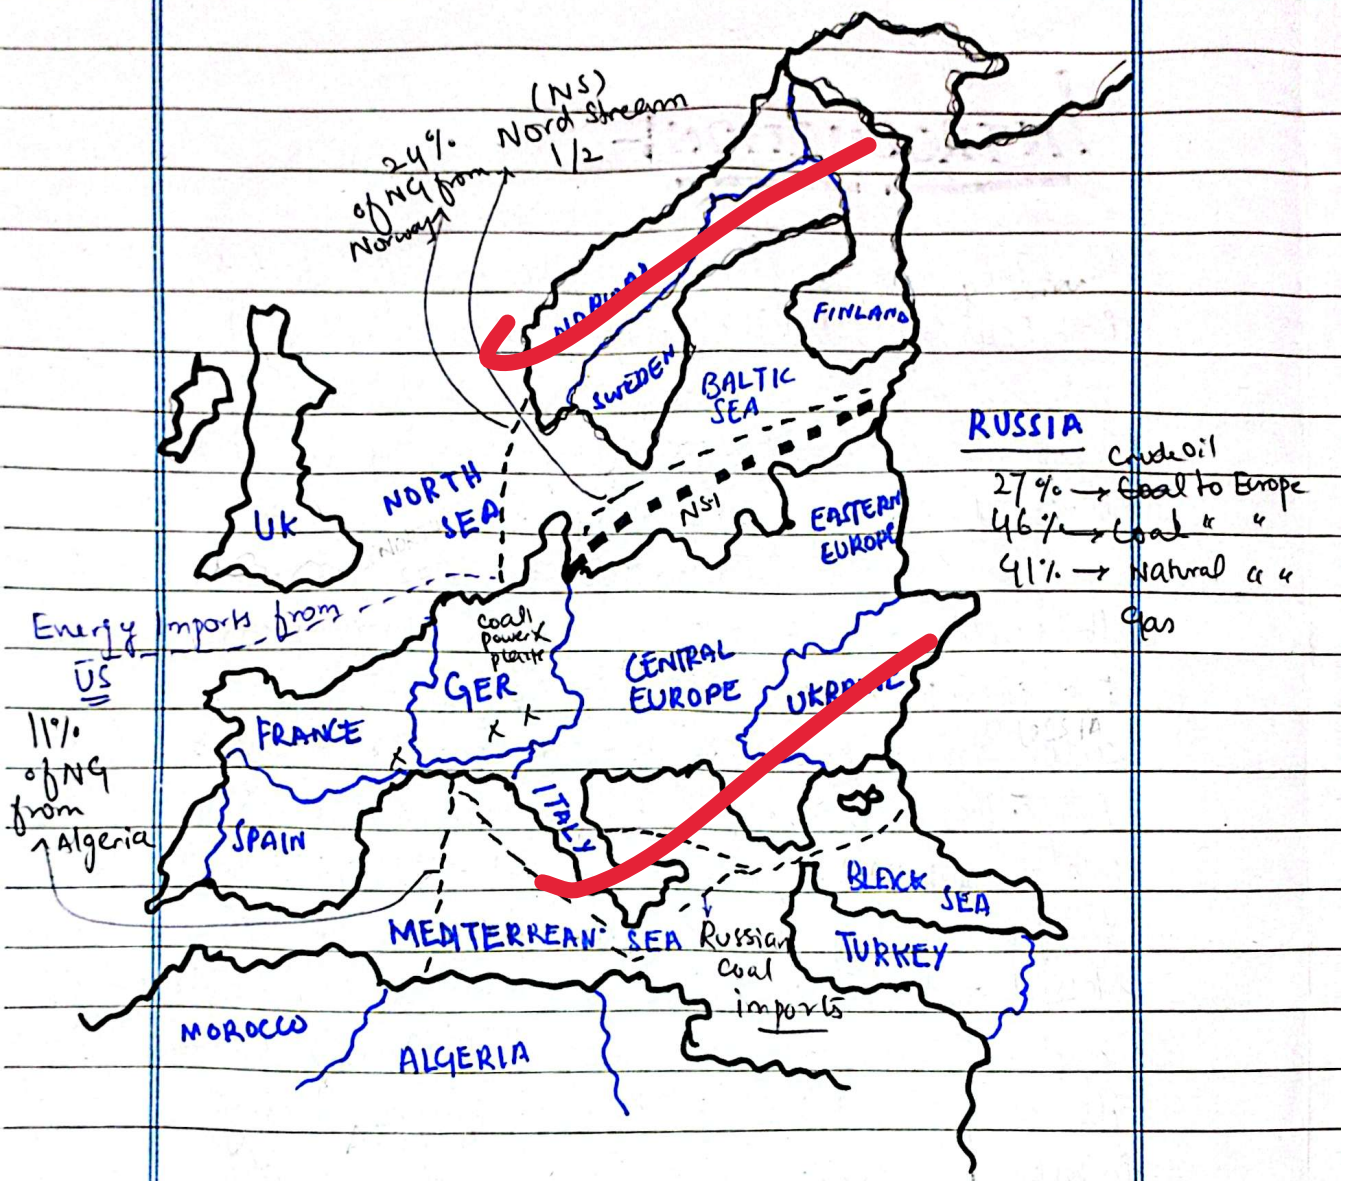 (NS)
Nord Stream
1/2
24%
of NG from
Norway
FINLAND
SWEDEN
BALTIC
SEA
RUSSIA
Crude Oil
27% → Coal to Europe
46% → Coal " "
41% → Natural " "
Gas
NORTH
SEA
NS-1
EASTERN
EUROPE
UK
Energy Imports from
US
coal
power x
plants
GER
x x
CENTRAL
EUROPE
UKRAINE
FRANCE
x
11%
of NG
from
Algeria
SPAIN
ITALY
BLACK
SEA
MEDITERREAN SEA
Russian
coal
imports
TURKEY
MOROCCO
ALGERIA